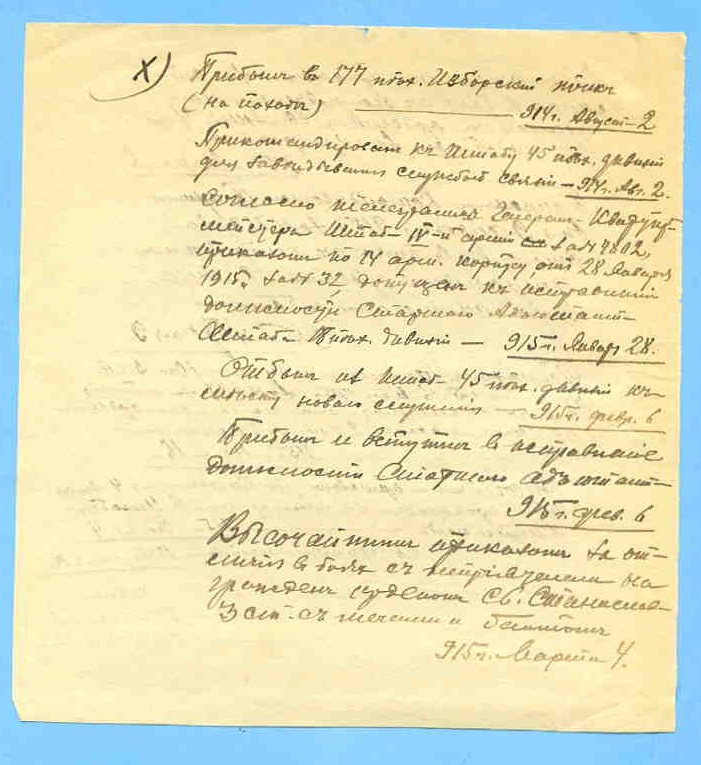 X) Прибылъ въ 177 пѣх. Изборскій полкъ
(на походѣ) — 914г. Август 2
Прикомандированъ къ Штабу 45 пѣх. дивизіи
для завѣдыванія службой связи — 914г. Авг. 2.
Согласно телеграммы Генерал-Квартир-
мейстера Штаба IV-й арміи за № 4802,
приказомъ по 14 арм. корпусу отъ 28 Января
1915г. за № 32, допущенъ къ исправленію
должности Старшаго Адъютанта
Штаба пѣх. дивизіи — 915г. Январ 28.
Отбылъ из Штаба 45 пѣх. дивизіи къ
мѣсту новаго служенія — 915г. февр. 6
Прибылъ и вступилъ в исправленіе
должности Старшаго Адъютанта
915г. фев. 6
Высочайшимъ приказомъ за от-
личія въ бояхъ съ непріятелемъ на-
гражденъ орденомъ Св. Станислава
3 ст. съ мечами и бантомъ
915г. Марта 4.